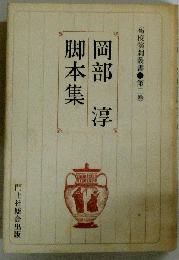 高校演劇叢書●第二巻
岡部 淳
脚本集
門土社総合出版